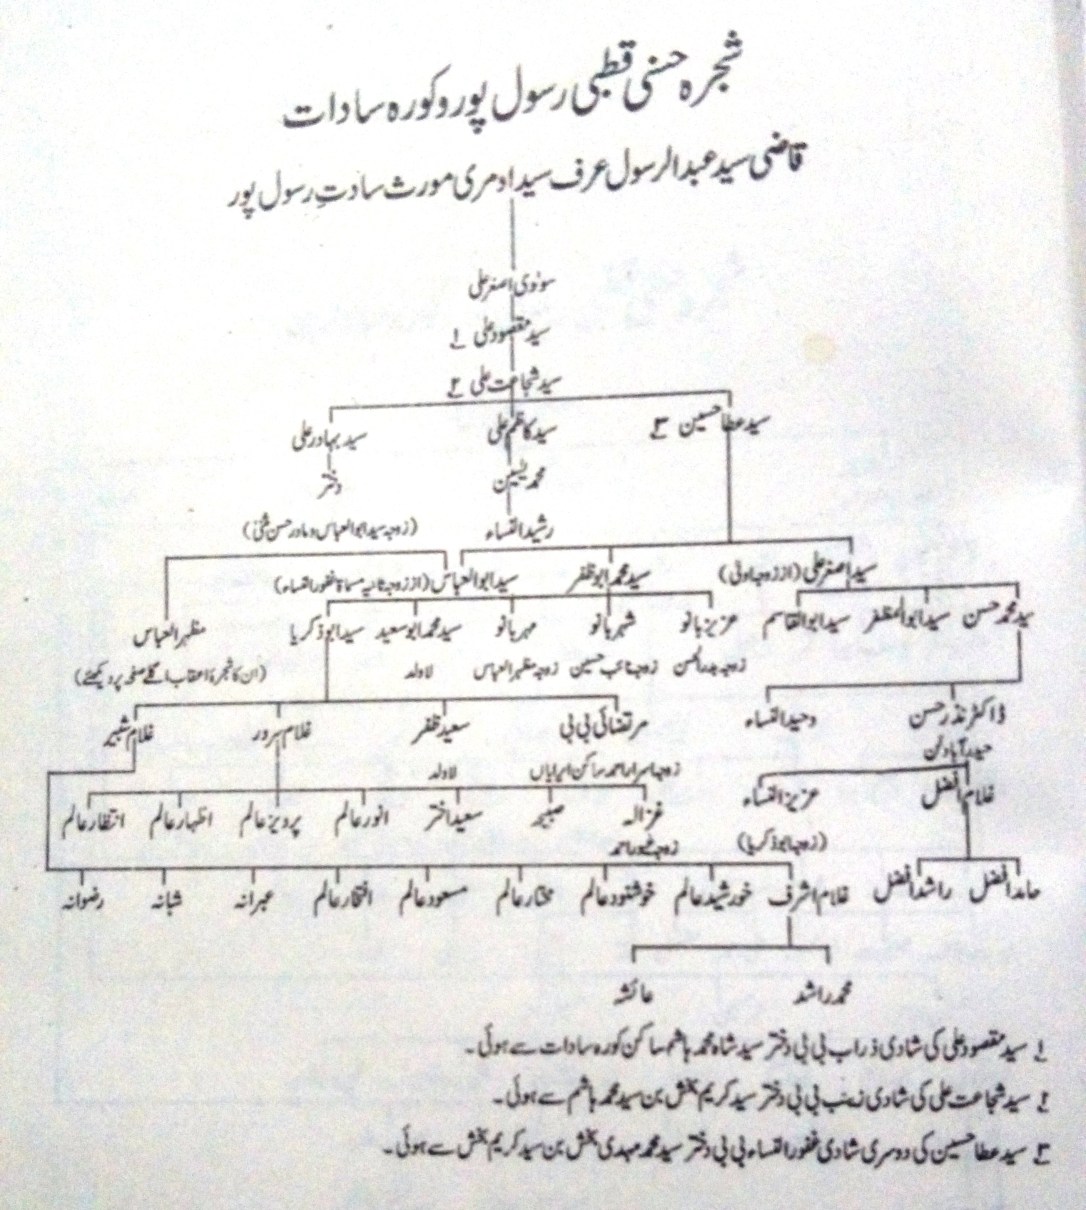 شجرہ حسنی قطبی رسول پور و کورہ سادات
قاضی سید عبدالرسول عرف سید اومری مورث سادتِ رسول پور
اصغر علی
سید مقصود علی ۱
سید شجاعت علی ۲
سید عطا حسین ۳ سید کاظم علی سید بہادر علی
محمد یٰسین دختر
رشید النساء (زوجہ سید ابوالعباس و مادر حسن مثنیٰ)
سید اصغر علی (از زوجہ اولیٰ) سید محمد ابو ظفر سید ابوالعباس (از زوجہ ثانیہ مسماۃ غفور النساء)
سید محمد حسن سید ابوالمظفر سید ابوالقاسم عزیز بانو شہر بانو مہر بانو سید محمد ابو سعید سید ابو ذکریا مظہر العباس
زوجہ بدرالحسن زوجہ نائب حسین زوجہ مظہر العباس لاولد (ان کا شجرۂ اعقاب اگلے صفحہ پر دیکھئے)
ڈاکٹر نذر حسن وحید النساء مرتضائی بی بی سعید ظفر غلام سرور غلام شبیر
حیدرآباد دکن زوجہ اسرار احمد ساکن ایرایاں لاولد
غلام افضل عزیز النساء غزالہ صبیحہ سعید اختر انور عالم پرویز عالم اظہار عالم انتظار عالم
(زوجہ ابو ذکریا) زوجہ ظہور احمد
حامد افضل راشد افضل غلام اشرف خورشید عالم خوشنود عالم مختار عالم مسعود عالم افتخار عالم عبرانہ شبانہ رضوانہ
محمد راشد عائشہ
۱ سید مقصود علی کی شادی ذراب بی بی دختر سید شاہ محمد ہاشم ساکن کورہ سادات سے ہوئی۔
۲ سید شجاعت علی کی شادی زینب بی بی دختر سید کریم بخش بن سید محمد ہاشم سے ہوئی۔
۳ سید عطا حسین کی دوسری شادی غفور النساء بی بی دختر سید محمد مہدی بخش بن سید کریم بخش سے ہوئی۔